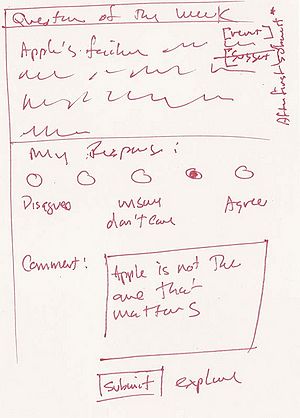 Question of the Week
Apple's failure
[revert]
[suggest]
After first submit *
My Response:
Disagree
unsure
don't care
Agree
Comment:
Apple is not the
one that
matters
submit
explore